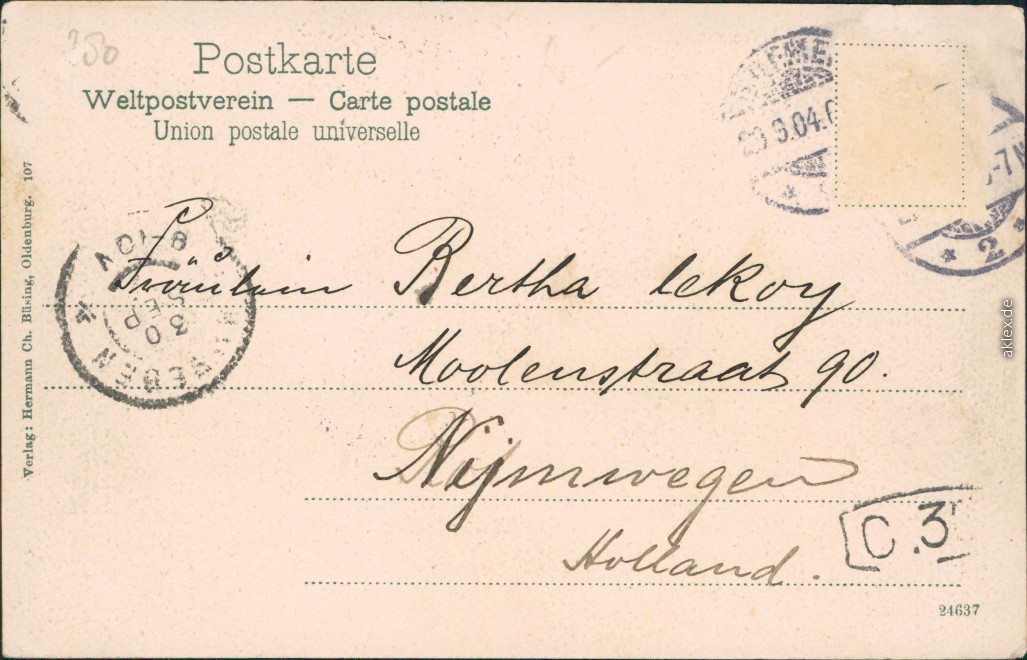 Postkarte
Weltpostverein — Carte postale
Union postale universelle
Verlag: Hermann Ch. Büsing, Oldenburg. 107
8-10V
30
SEP
Fräulein Bertha leKoy
Moolenstraat 90.
Nijmwegen
Holland.
C.3
2
24637
aklex.de